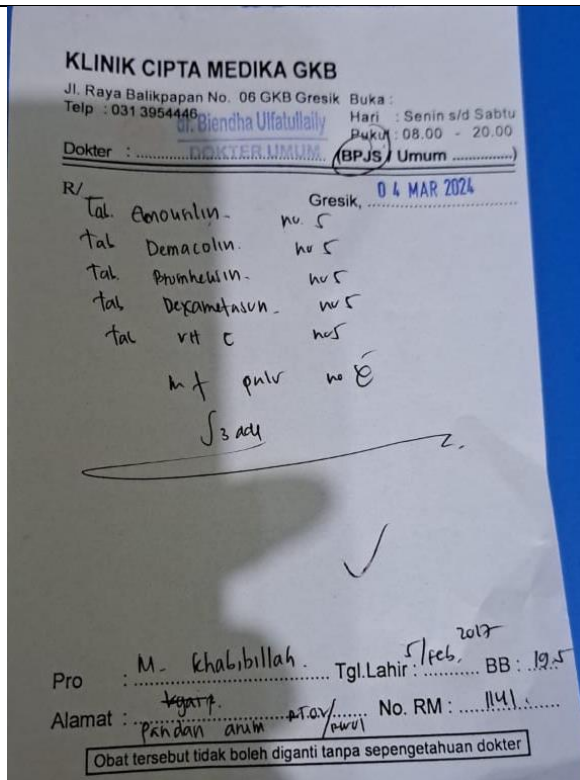 KLINIK CIPTA MEDIKA GKB
Jl. Raya Balikpapan No. 06 GKB Gresik Buka :
Telp : 031 3954446 Hari : Senin s/d Sabtu
dr. Biendha Ulfatullaily Pukul : 08.00 - 20.00
Dokter : DOKTER UMUM (BPJS / Umum ..............)
R/ Gresik, 04 MAR 2024
Tab. no. 5
tab Demacolin. no 5
Tab. no 5
tab no 5
tab vit C no 5
m f pulv no
S 3 dd 1
Pro : M. Khabibillah. Tgl.Lahir : 5/Feb. 2017 BB : 19.5
Alamat : pandan No. RM : 1141.
Obat tersebut tidak boleh diganti tanpa sepengetahuan dokter